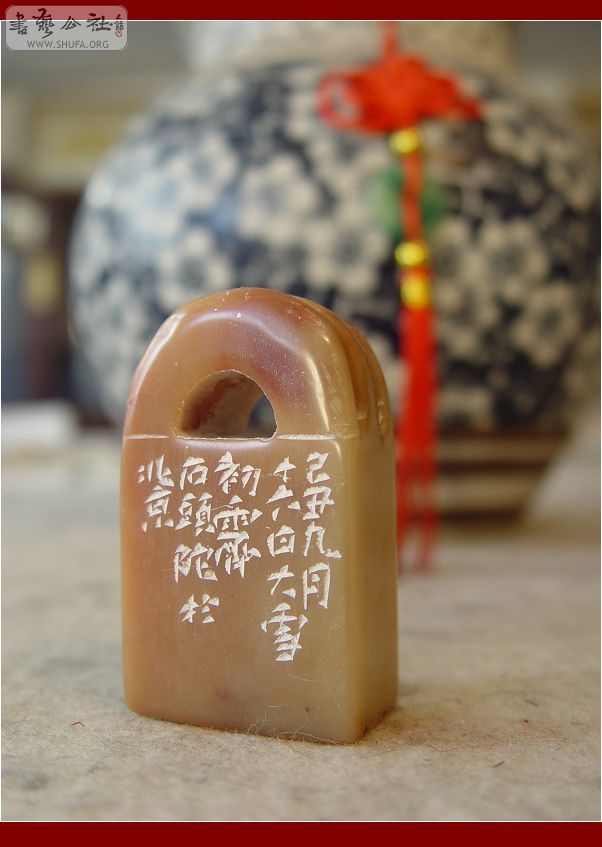 書藝公社
WWW.SHUFA.ORG
己丑九月
十六日大雪
初霽
石頭陀於
北京